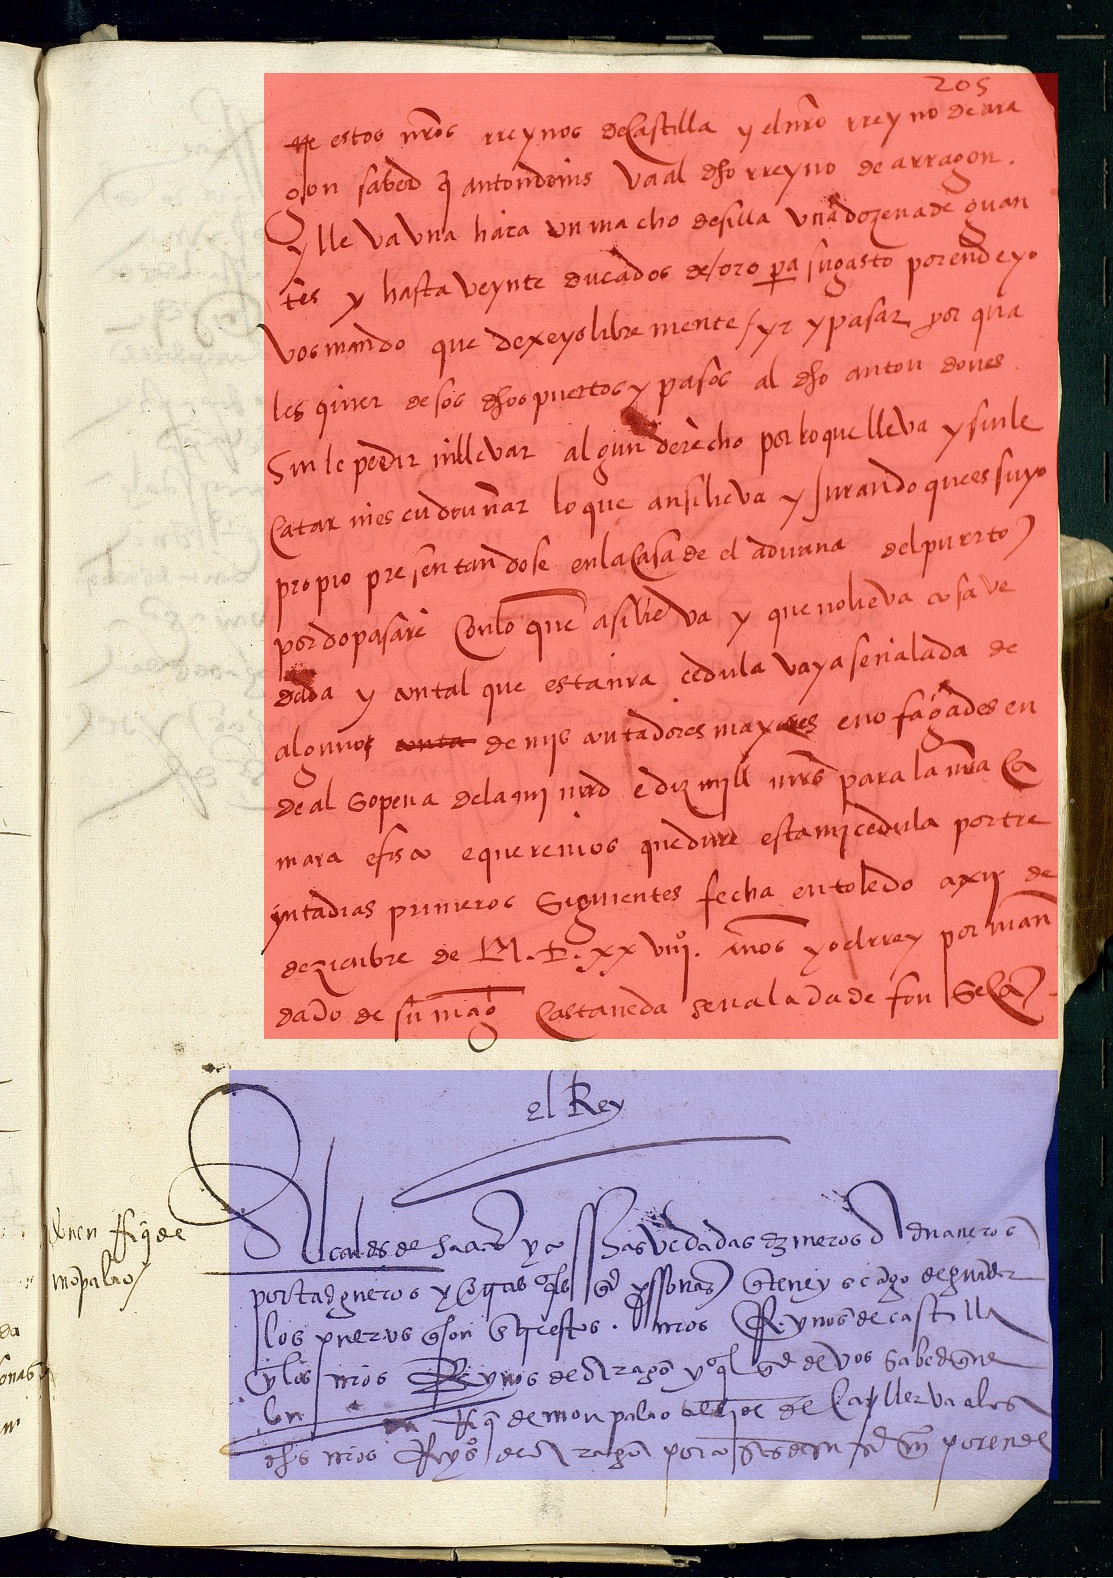 205
de estos nros rreynos de castilla y el nro rreyno de ara
gon sabed q anton doms va al dho rreyno de arragon.
y lleva una haca un macho de silla una dozena de guan
tes y hasta veynte ducados de oro pa su gasto por ende yo
vos mando que dexeys libre mente yr y pasar por qua
les quier desos dhos puertos y pasos al dho anton doms
sin le pedir ni llevar algun derecho por lo que lleva y sin le
catar ni escudruñar lo que ansi lieva y jurando que es suyo
propio presentandose en la casa de el aduana del puerto
por do pasare con lo que asi lieva y que no lieva cosa ve
dada y con tal que esta nra cedula vaya señalada de
alguno de mis contadores mayores e no fagades en
de al so pena de la mi mrd e diz mill mrs para la nra ca
mara e fisco e queremos que dure esta mi cedula por tre
ynta dias primeros siguientes fecha en toledo a xii de
deziembre de M.D.xxviii. años yo el rrey por man
dado de su magd Castañeda señalada de fonseca
el Rey
Alcaldes de sacas y cosas vedadas dezmeros aduaneros
portadgueros y otras qlesqer personas q teneys cargo de guardar
los puertos q son entre estos nros Reynos de castilla
y los nros Reynos de Aragon y a ql qer de vos sabed que
fiq de monpalao de Caller va a los
dhos nros Reynos de Aragon por cosas de mi por ende
fiq de
monpalao